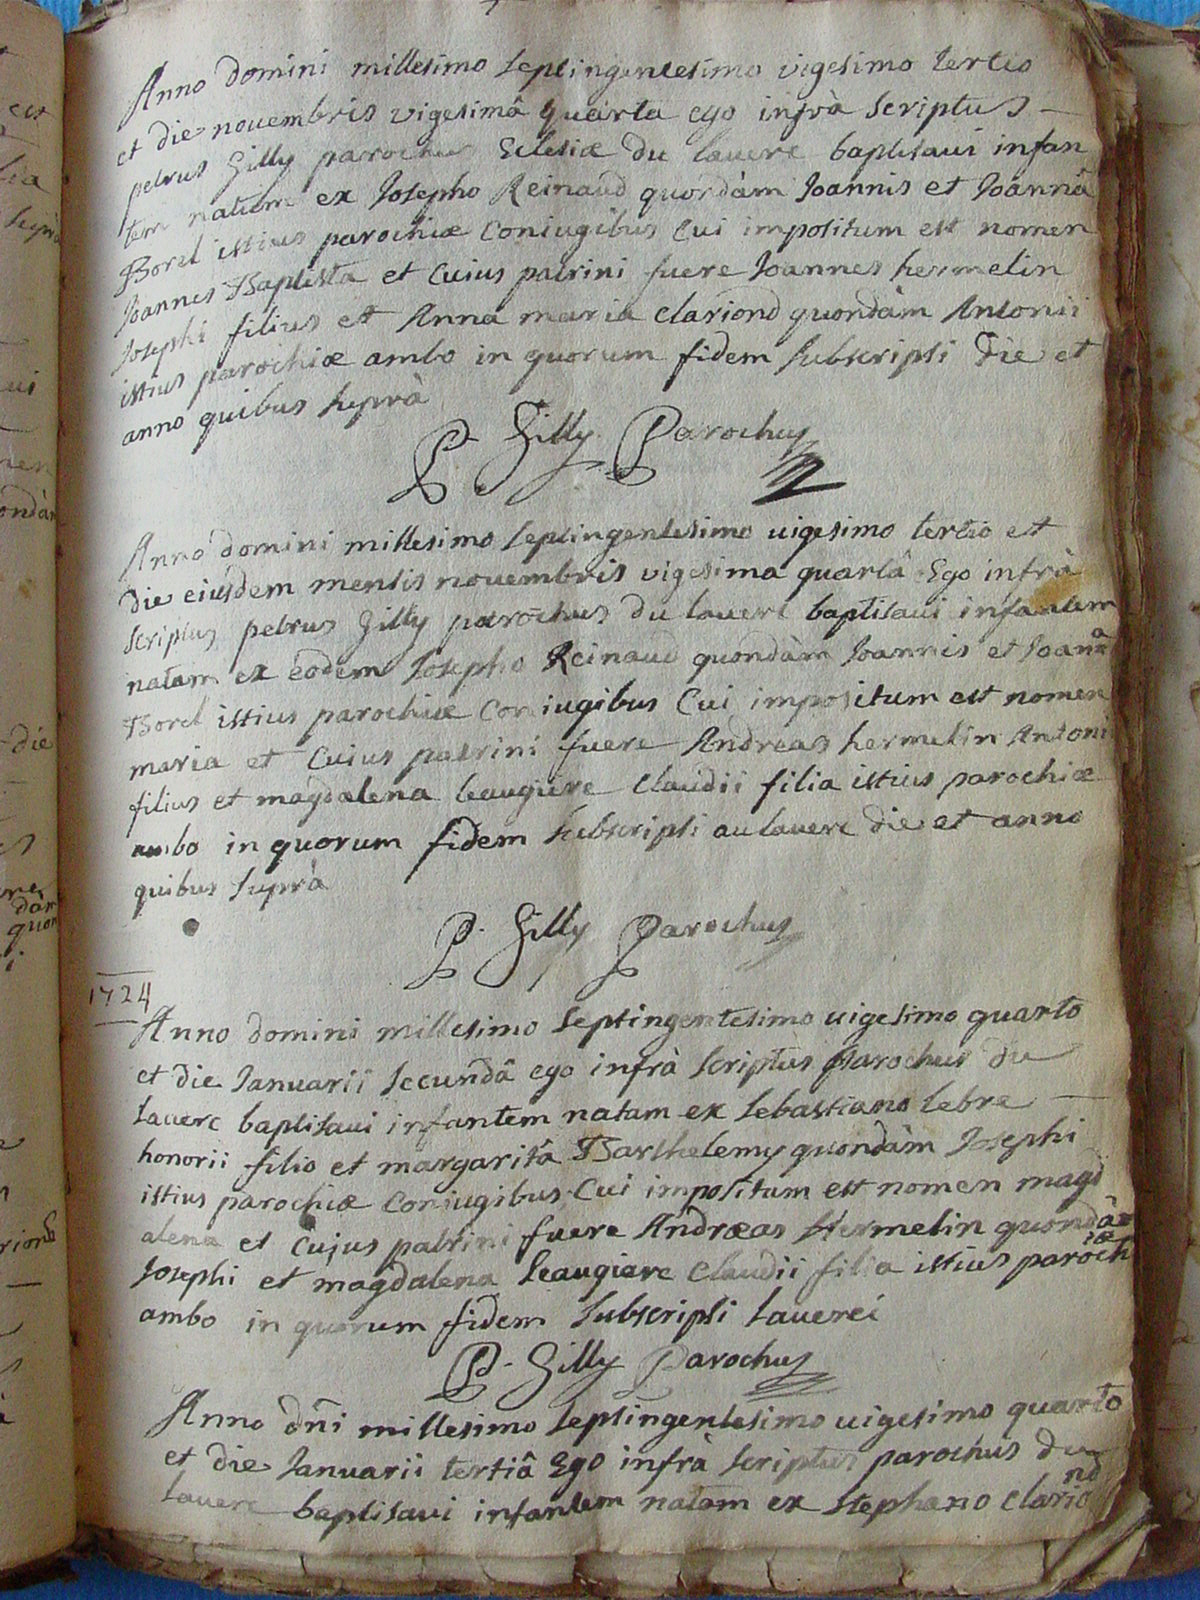 Anno domini millesimo septingentesimo vigesimo tertio
et die novembris vigesimâ quarta ego infrà scriptus
petrus Gilly parochus Eclesiæ du lauere baptisaui infan
tem natum ex Josepho Reinaud quondàm Joannis et Joannâ
Borel istius parochiæ coniugibus cui impositum est nomen
Joannes Baptista et cuius patrini fuere Joannes hermelin
Josephi filius et Anna maria clariond quondàm Antonii
istius parochiæ ambo in quorum fidem subscripsi die et
anno quibus suprà
P. Gilly Parochus
Anno domini millesimo septingentesimo uigesimo tertio et
die eiusdem mensis novembris vigesima quartâ Ego infrà
scriptus petrus Gilly parochus du lauere baptisaui infantem
natam ex eodem Josepho Reinaud quondàm Joannis et Joanâ
Borel istius parochiæ coniugibus cui impositum est nomen
maria et cuius patrini fuere Andreas hermelin Antoni
filius et magdalena leaugiere claudii filia istius parochiæ
ambo in quorum fidem subscripsi au lauere die et anno
quibus suprà
P. Gilly Parochus
1724
Anno domini millesimo septingentesimo uigesimo quarto
et die Januarii secundâ ego infrà scriptus parochus du
lauere baptisaui infantem natam ex sebastiano lebre
honorii filio et margaritâ Barthelemy quondàm Josephi
istius parochiæ coniugibus cui impositum est nomen magd
alena et cujus patrini fuere Andræas Hermelin quondàm
Josephi et magdalena leaugiere claudii filia istius parochiæ
ambo in quorum fidem subscripsi laueréi
P. Gilly Parochus
Anno dñi millesimo septingentesimo uigesimo quarto
et die Januarii tertiâ Ego infrà scriptus parochus du
lauere baptisaui infantem natam ex stephano clariond